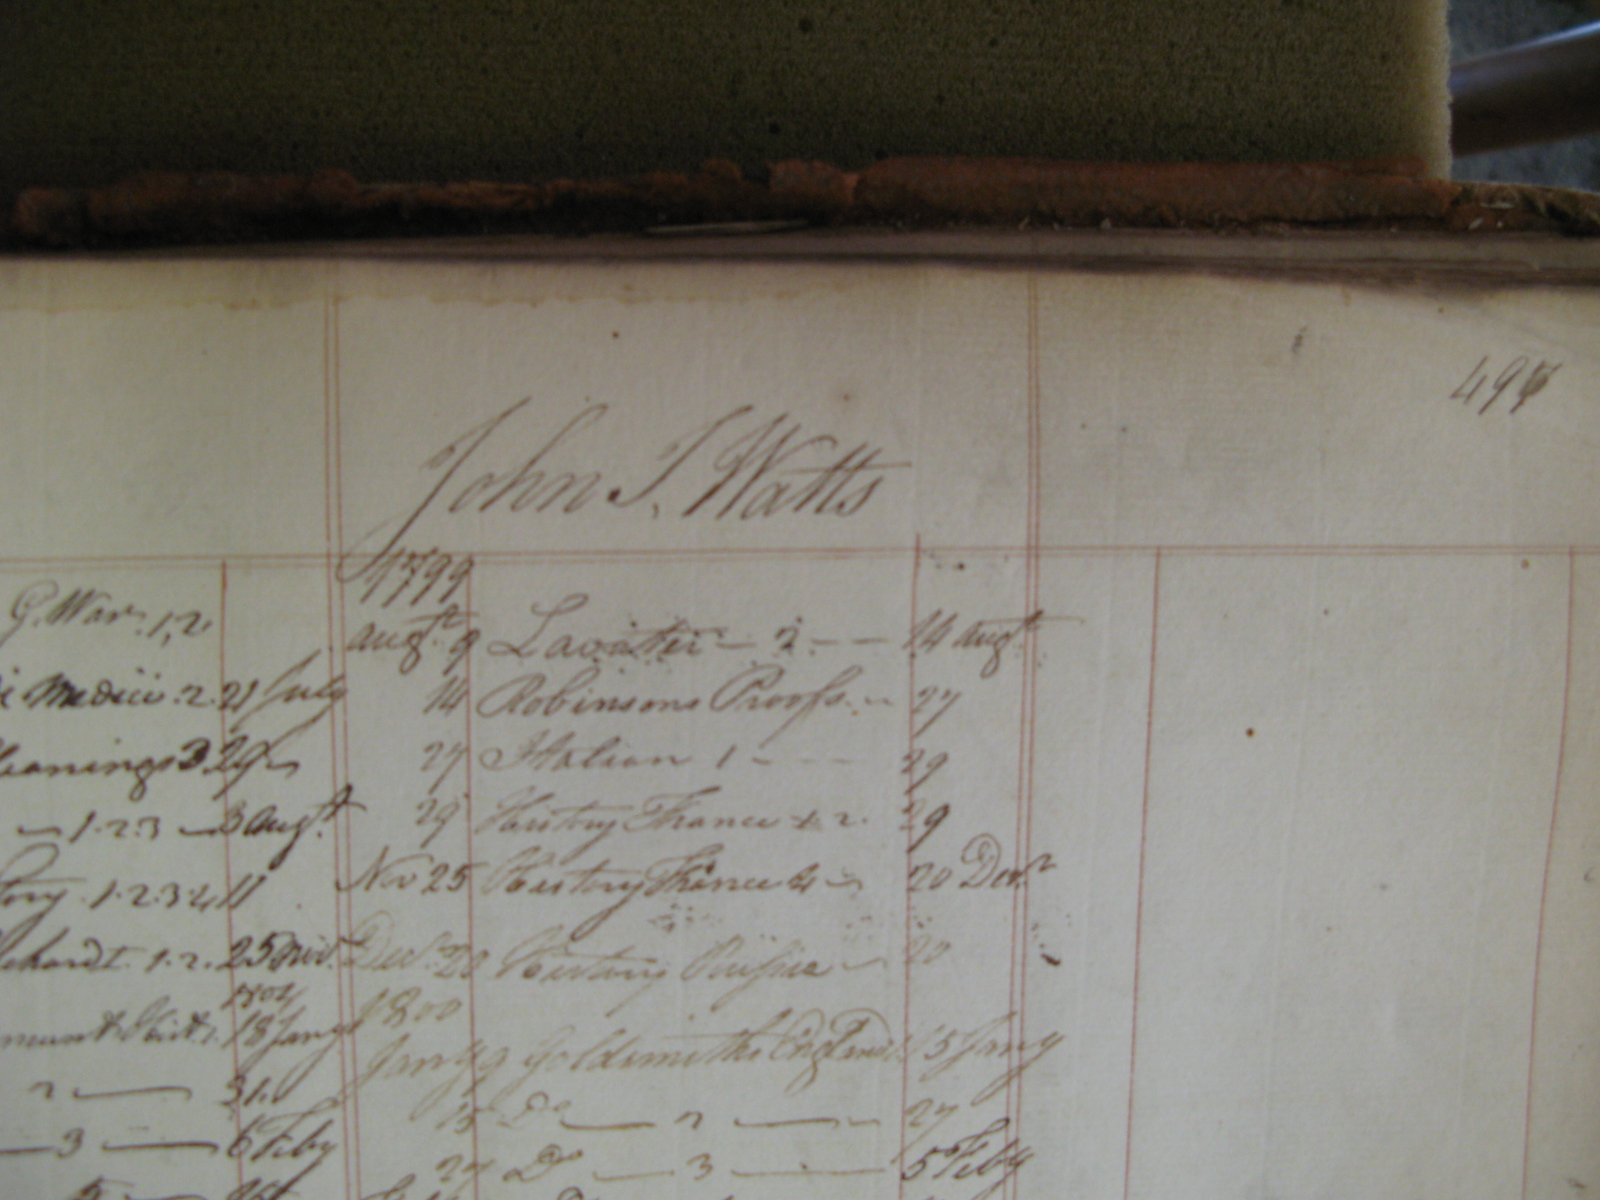 49
John J. Watts
1799
G. War. 1,2
augst 9 Lavater — 2 — — 14 augst
Medici 2. 21 July
14 Robinsons Proofs — 27
eanings 3 29
27 Italian 1 - - - 29
1.2.3 — 3 augst
29 History France 1 2. 29
ory 1.2.3.4 11
Nov 25 History France 4 — 20 Decr
chardt 1.2. 25 Nov.
Decr 20 History — 20
1800
18 Jany
Jany 9 Goldsmiths England 1 15 Jany
2 — 31.
15 Do — 2 — 27
— 3 — 6 Feby
27 Do — 3 — 5 Feby